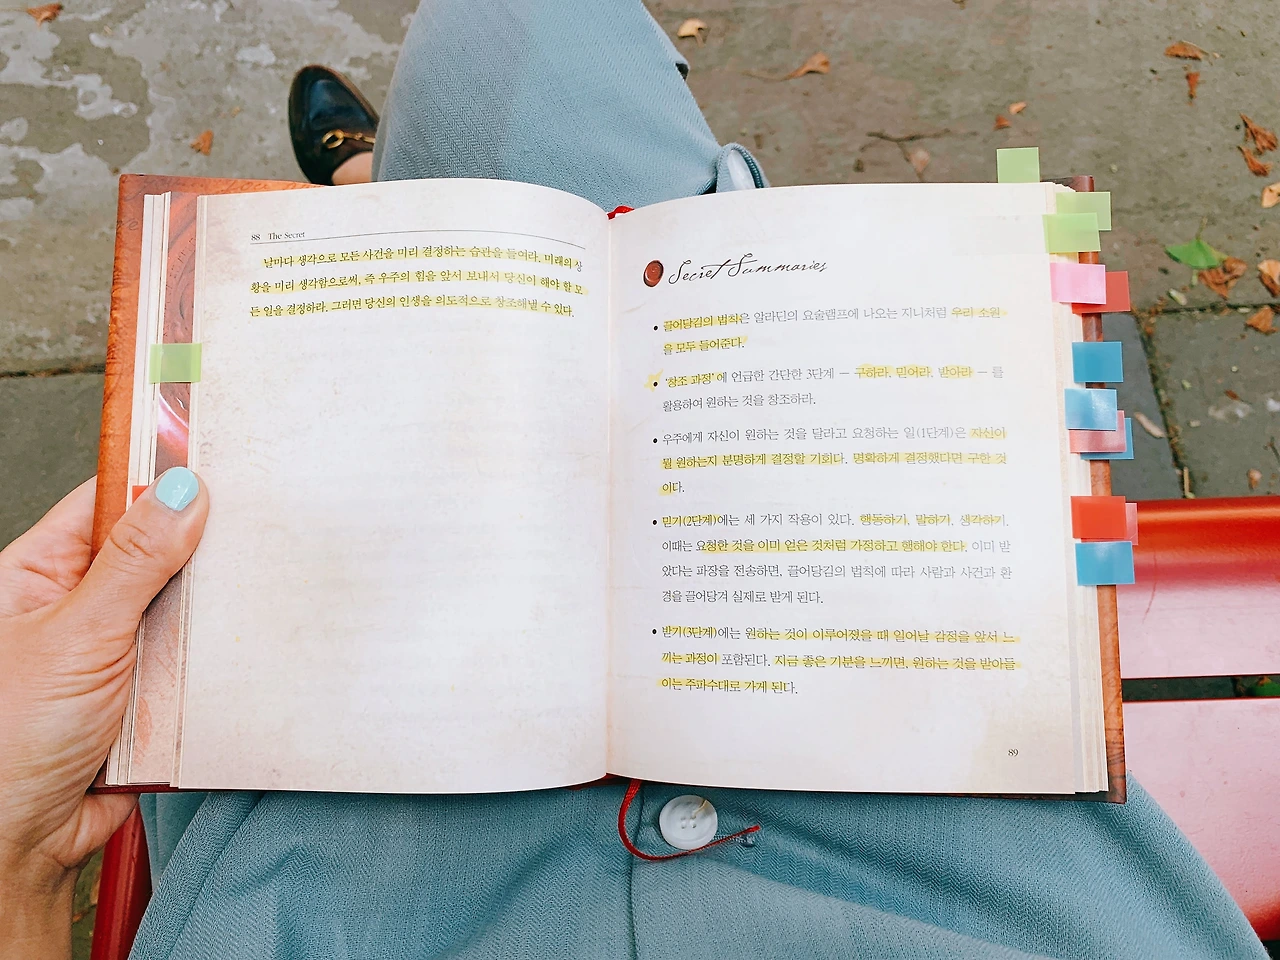 88 The Secret
날마다 생각으로 모든 사건을 미리 결정하는 습관을 들여라. 미래의 상
황을 미리 생각함으로써, 즉 우주의 힘을 앞서 보내서 당신이 해야 할 모
든 일을 결정하라. 그러면 당신의 인생을 의도적으로 창조해낼 수 있다.
Secret Summaries
• 끌어당김의 법칙은 알라딘의 요술램프에 나오는 지니처럼 우리 소원
을 모두 들어준다.
• '창조 과정'에 언급한 간단한 3단계 — 구하라, 믿어라, 받아라 — 를
활용하여 원하는 것을 창조하라.
• 우주에게 자신이 원하는 것을 달라고 요청하는 일(1단계)은 자신이
뭘 원하는지 분명하게 결정할 기회다. 명확하게 결정했다면 구한 것
이다.
• 믿기(2단계)에는 세 가지 작용이 있다. 행동하기, 말하기, 생각하기.
이때는 요청한 것을 이미 얻은 것처럼 가정하고 행해야 한다. 이미 받
았다는 파장을 전송하면, 끌어당김의 법칙에 따라 사람과 사건과 환
경을 끌어당겨 실제로 받게 된다.
• 받기(3단계)에는 원하는 것이 이루어졌을 때 일어날 감정을 앞서 느
끼는 과정이 포함된다. 지금 좋은 기분을 느끼면, 원하는 것을 받아들
이는 주파수대로 가게 된다.
89